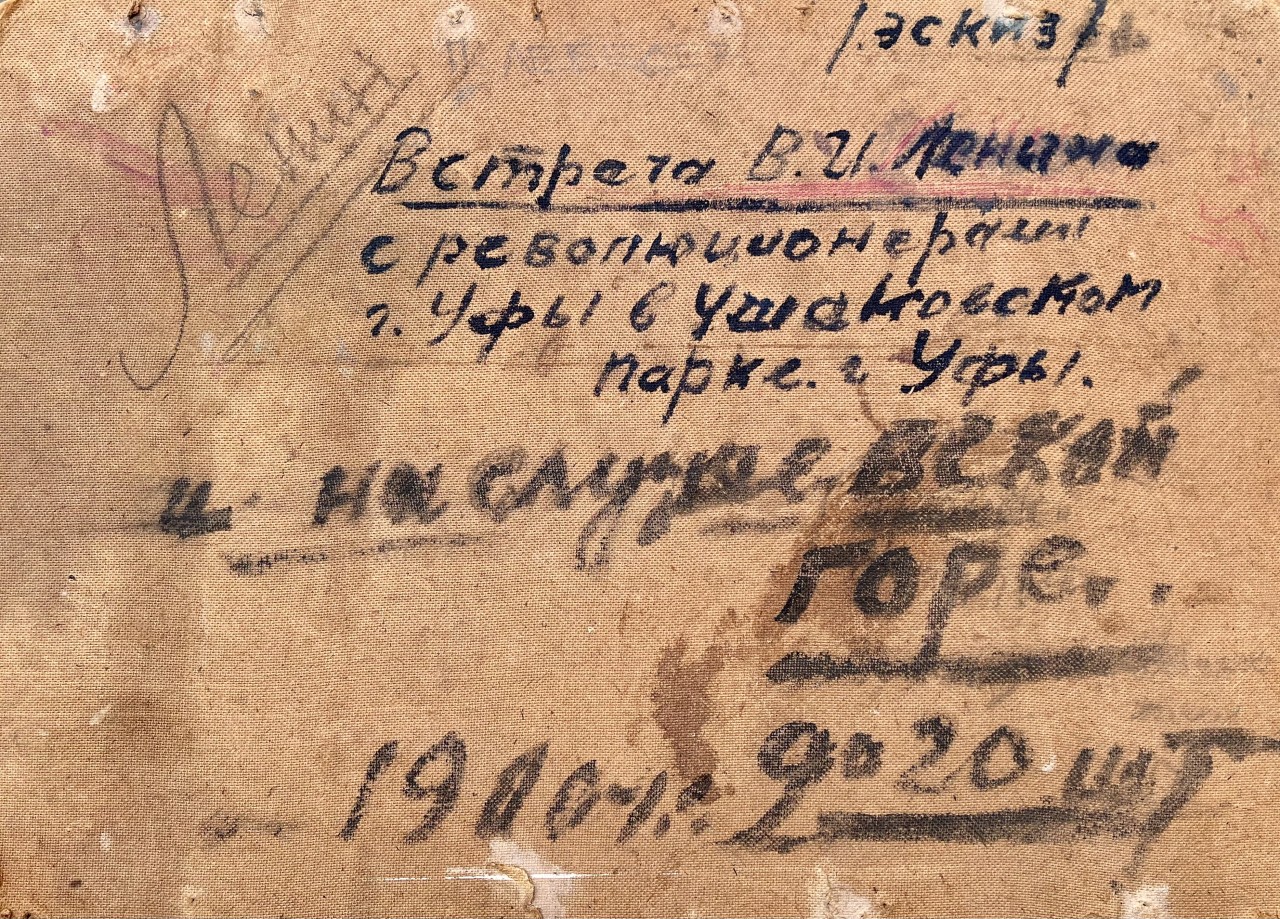 /эскиз/
Ленин
Встреча В.И. Ленина
с революционерами
г. Уфы в Ушаковском
парке. г Уфы.
и на случаевской
горе..
19 до 20 шт